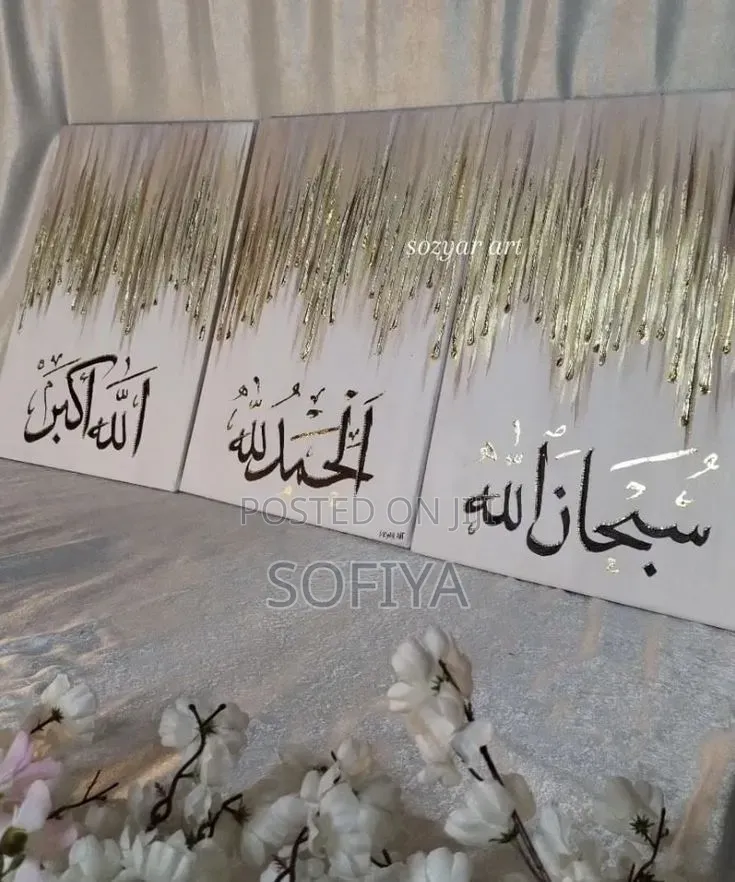 sozyar art
سُبْحَانَ اللّٰه
الْحَمْدُ لِلّٰه
اَللّٰهُ اَكْبَرْ
POSTED ON JI
SOFIYA